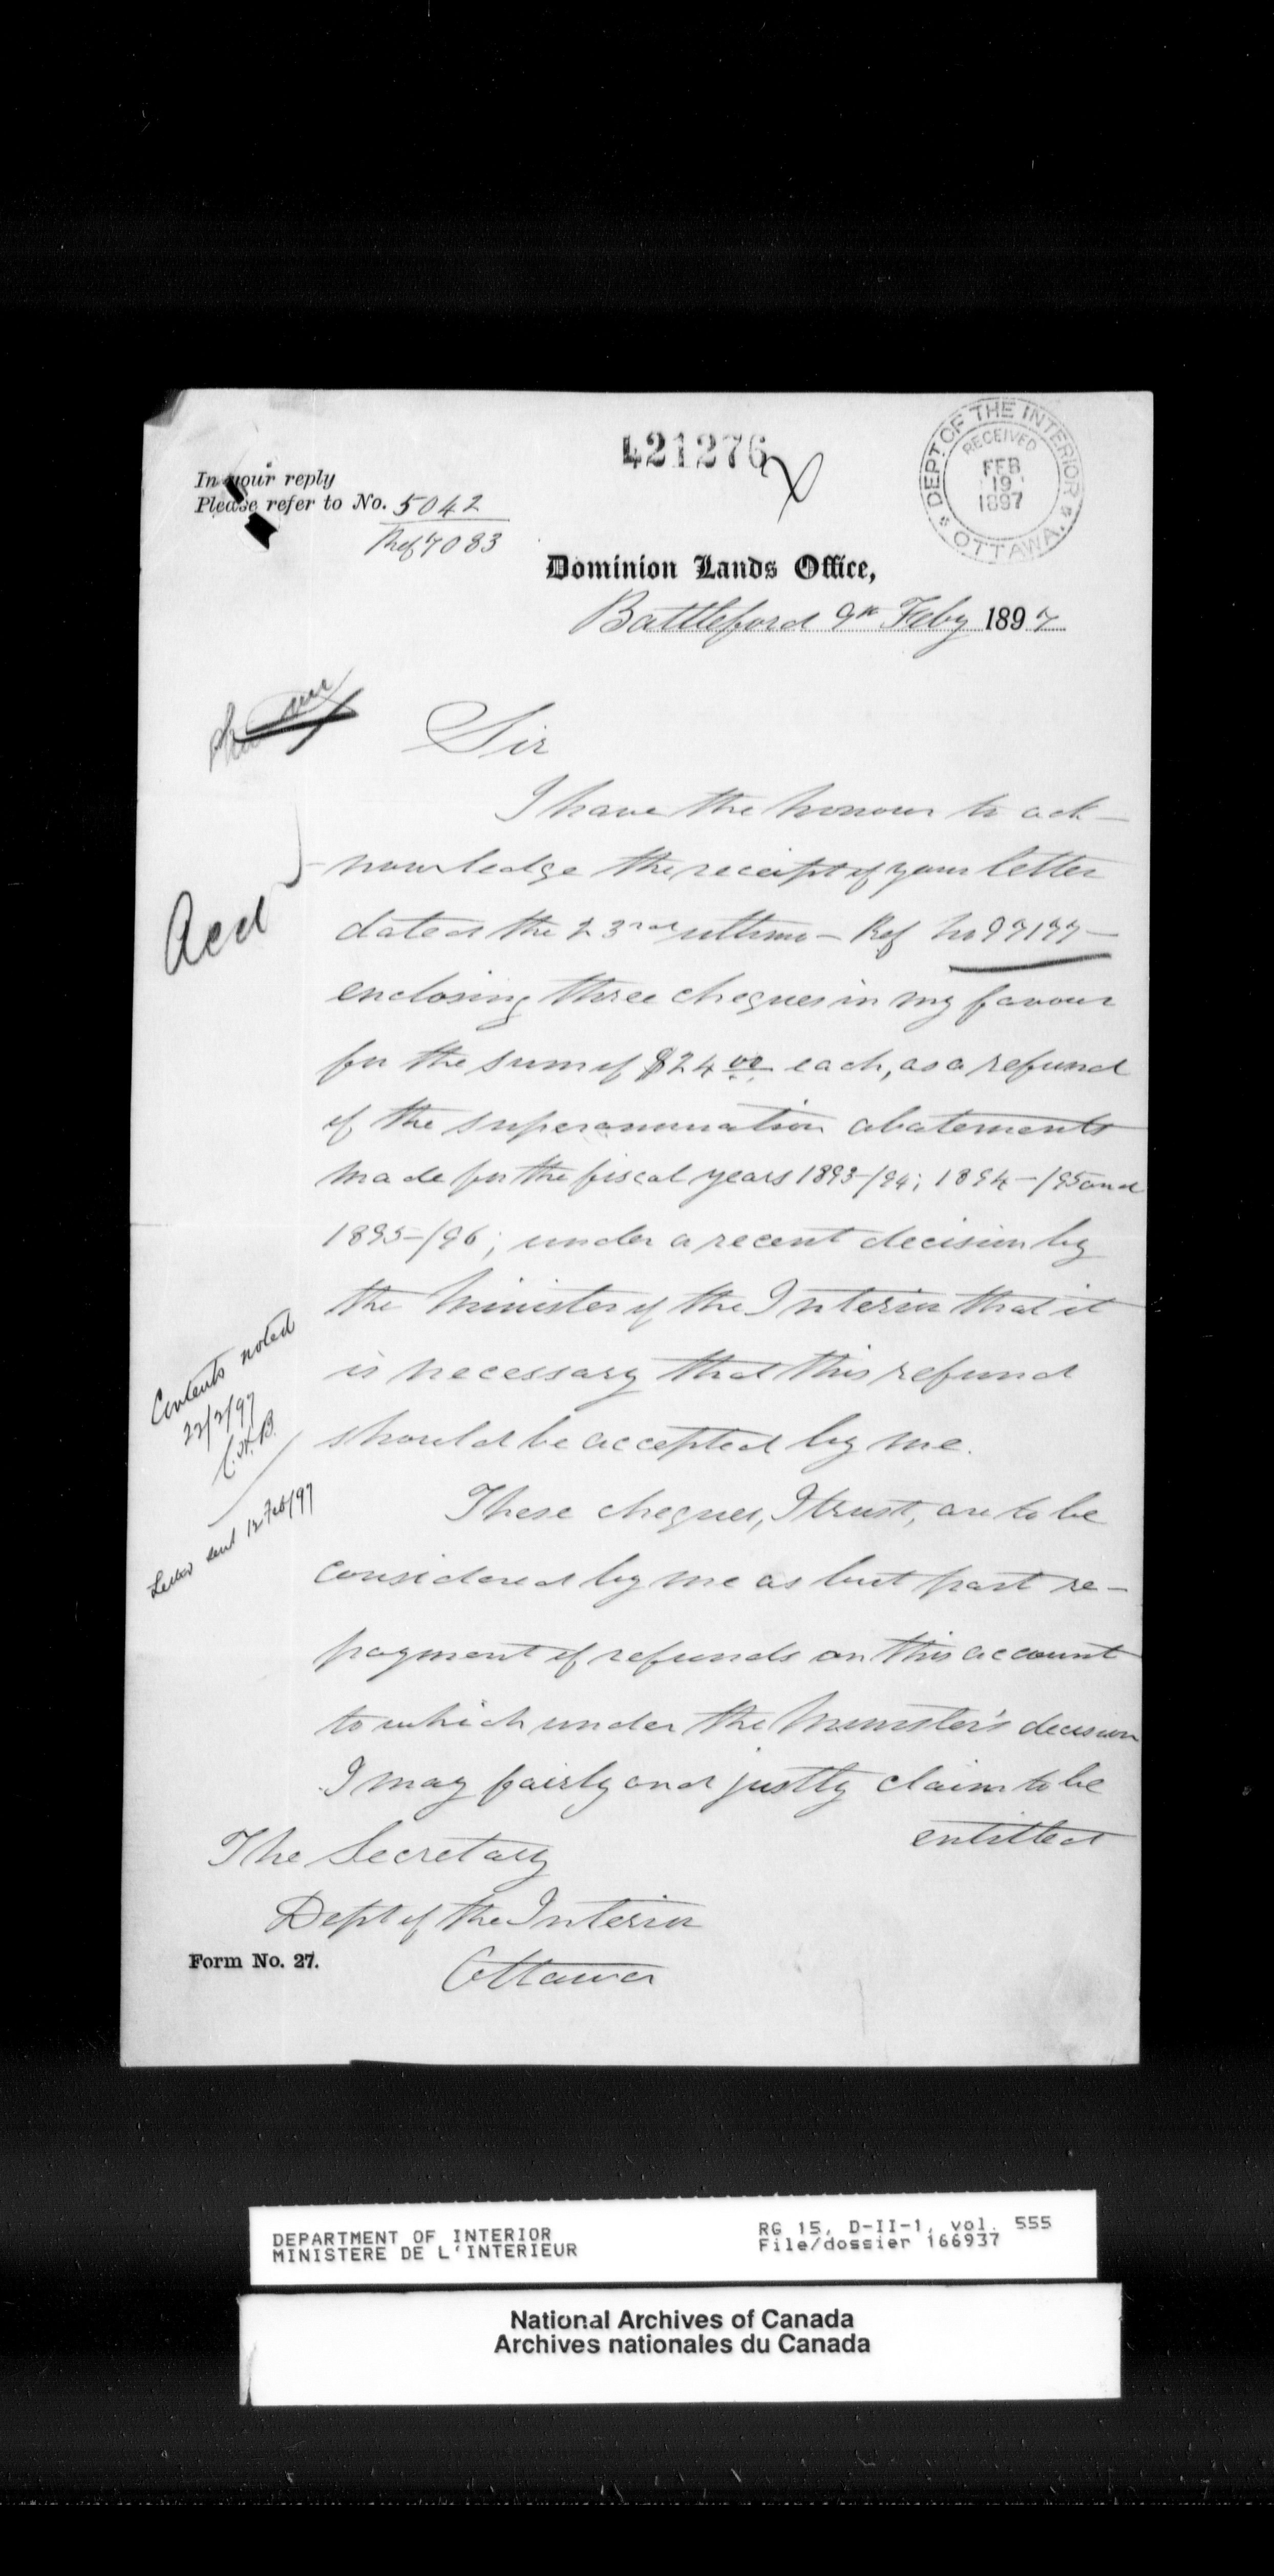 421276
DEPT. OF THE INTERIOR
RECEIVED
FEB
19
1897
OTTAWA
In your reply
Please refer to No. 5042
Ref 7083
Dominion Lands Office,
Battleford 9th Feby 1897
Sir
I have the honour to ack-
nowledge the receipt of your letter
dated the 23rd ultimo – Ref No
enclosing three cheques in my favour
for the sum of $24.00 each, as a refund
of the superannuation abatements
made for the fiscal years 1893-/94; 1894-/95 and
1895-/96; under a recent decision by
the Minister of the Interior that it
is necessary that this refund
should be accepted by me.
These cheques, I trust, are to be
considered by me as but part re-
payment of refunds on this account
to which under the Minister's decision
I may fairly and justly claim to be
entitled
The Secretary
Dept of the Interior
Ottawa
Form No. 27.
Acd
Contents noted
22/2/97
C.H.B.
Letter sent 12 Feb/97
DEPARTMENT OF INTERIOR
MINISTERE DE L'INTERIEUR
RG 15, D-II-1, vol. 555
File/dossier 166937
National Archives of Canada
Archives nationales du Canada